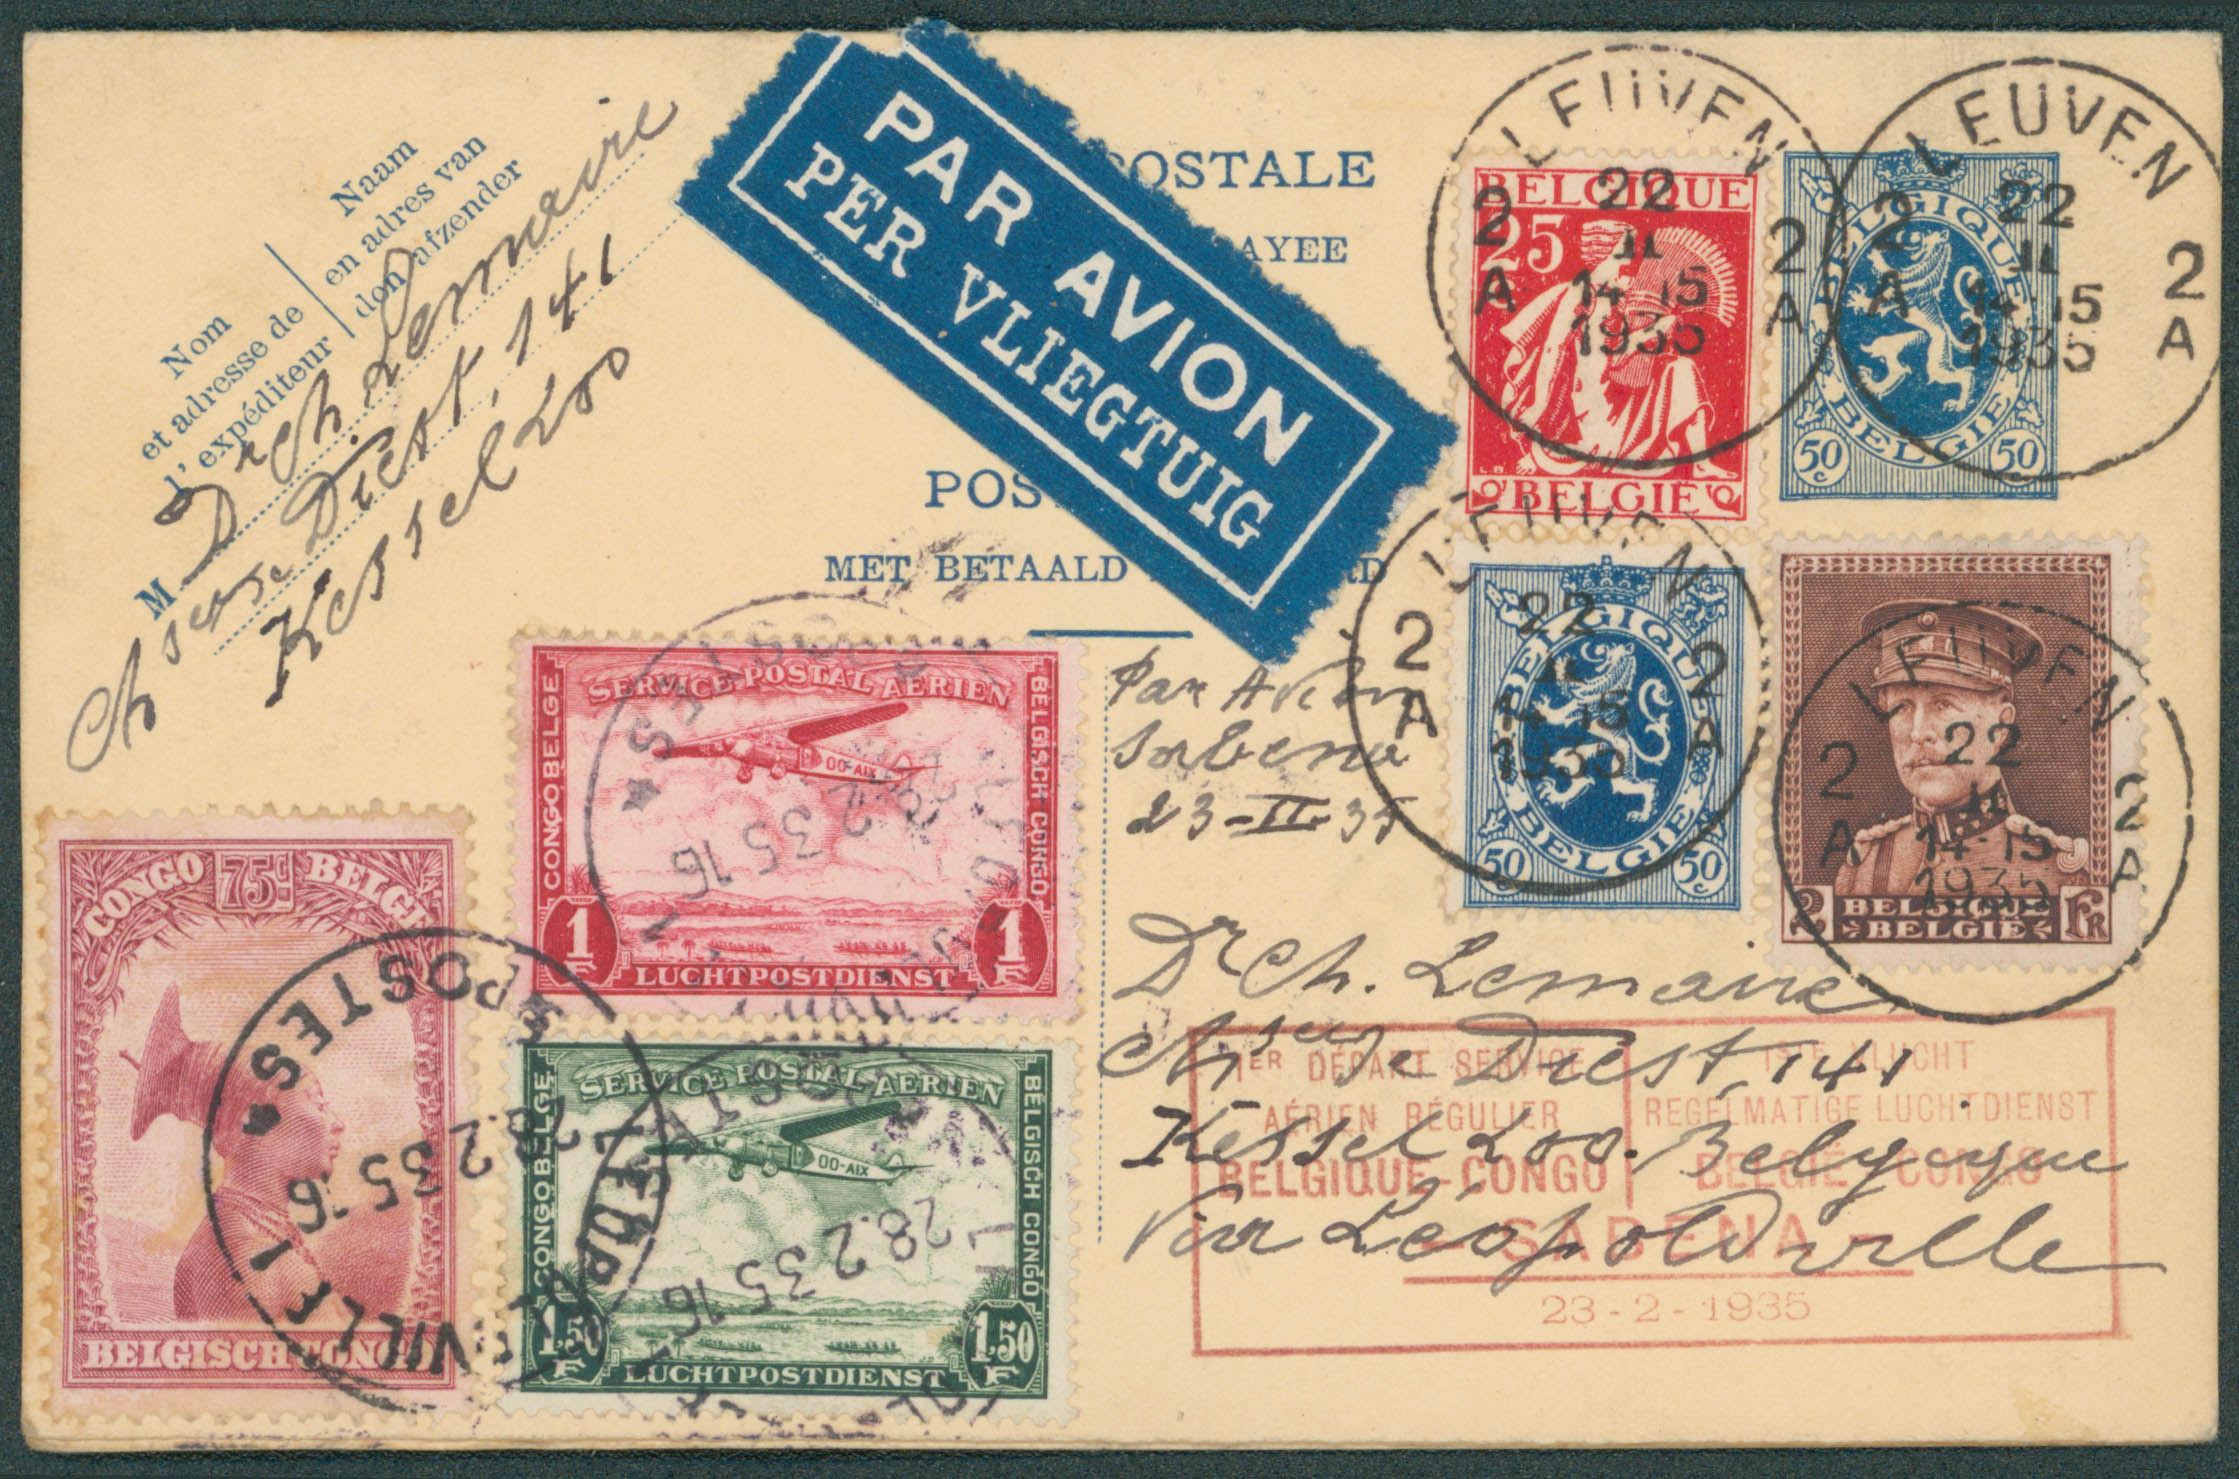 Nom
et adresse de
l'expéditeur
Naam
en adres van
den afzender
M
Dr Ch Lemaire
Chsée de Diest, 141
Kessel Loo
PAR AVION
PER VLIEGTUIG
POSTALE
AYEE
POS
MET BETAALD
RD
LEUVEN
2 2
A A
22
II
14-15
1935
BELGIQUE
25
BELGIË
LEUVEN
2 2
A A
22
II
14-15
1935
BELGIQUE
BELGIË
50 c 50 c
LEUVEN
2 2
A A
22
II
14-15
1935
BELGIQUE
BELGIË
50 c 50 c
LEUVEN
2 2
A A
22
II
14-15
1935
2 BELGIQUE FR
BELGIË
Par Avion
Sabena
23-II-35
SERVICE POSTAL AÉRIEN
CONGO BELGE
BELGISCH-CONGO
OO-AIX
1 F 1 F
LUCHTPOSTDIENST
POSTES
28.2.35 16
CONGO 75c BELGE
BELGISCH CONGO
POSTES
28.2.35 16
LEOPOLDVILLE 1
SERVICE POSTAL AÉRIEN
CONGO BELGE
BELGISCH CONGO
OO-AIX
1,50 F 1,50 F
LUCHTPOSTDIENST
28.2.35 16
Dr Ch. Lemaire
Chsée de Diest, 141
Kessel Loo. Belgique
Via Léopoldville
1ER DÉPART SERVICE
AÉRIEN RÉGULIER
BELGIQUE-CONGO
1STE VLUCHT
REGELMATIGE LUCHTDIENST
BELGIË-CONGO
- SABENA -
23-2-1935